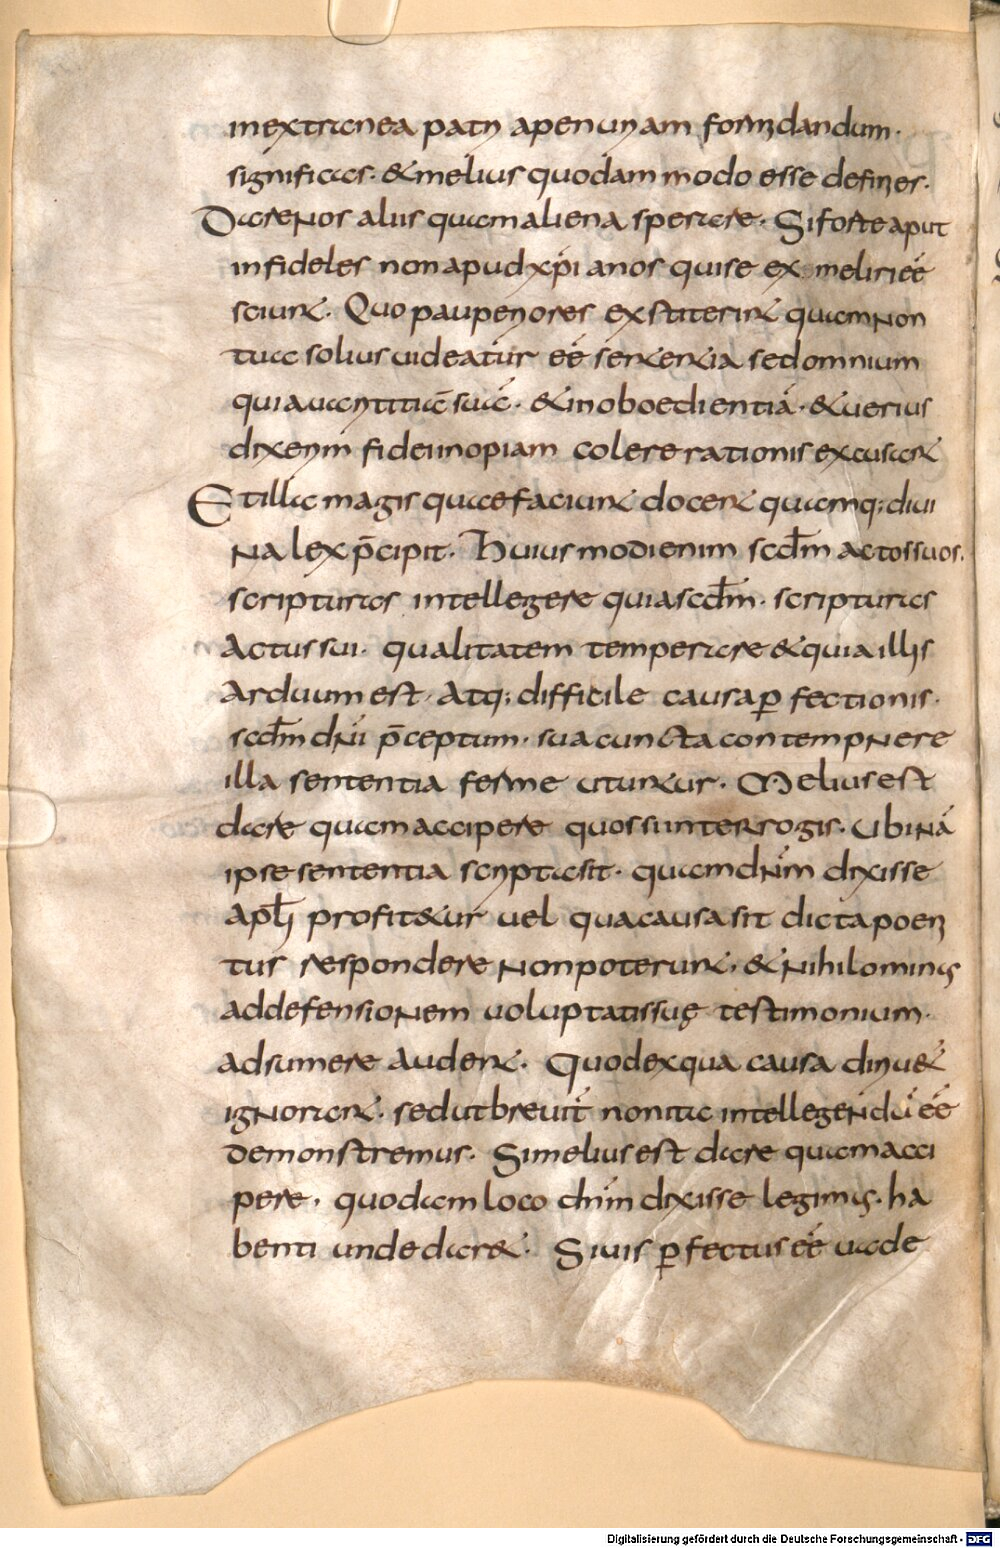 in extranea patri aperuiram formidandum.
significas. & melius quodam modo esse defines.
Dare nos aliis quam aliena sperare. Si forte aput
infideles non apud xp̄ianos qui se ex meliri eé
sciunt. Quo pauperiores exstiterint quam non
tua solius uideatur eé sententia sed omnium
qui auaritiā suā. & inoboedientiā. & uerius
dixerim fidei inopiam colere rationis excusant
Et illa magis quae faciunt docent quamq; diui
na lex p̄cipit. Huius modi enim scd̄m actos suos.
scripturas intellegere quia scd̄m. scripturas
actus sui. qualitatem temperare & quia illis
arduum est. atq; difficile causa ꝑfectionis.
scd̄m dn̄i p̄ceptum. sua cuncta contempnere
illa sententia ferme utuntur. Melius est
dare quam accipere quos si interrogis. Ubi nā
ipse sententia scripta sit. quam dn̄m dixisse
apl̄s profitetur uel qua causa sit dicta poeni
tus respondere non poterunt. & nihilominus
ad defensionem uoluptatis suę testimonium.
adsumere audent. Quod ex qua causa dixerit
ignorant. sed ut breuit̄ non ita intellegendū eé
demonstremus. Si melius est dare quam acci
pere. quodam loco dn̄m dixisse legimus. ha
benti unde daret. Si uis ꝑfectus eé uade
Digitalisierung gefördert durch die Deutsche Forschungsgemeinschaft - DFG